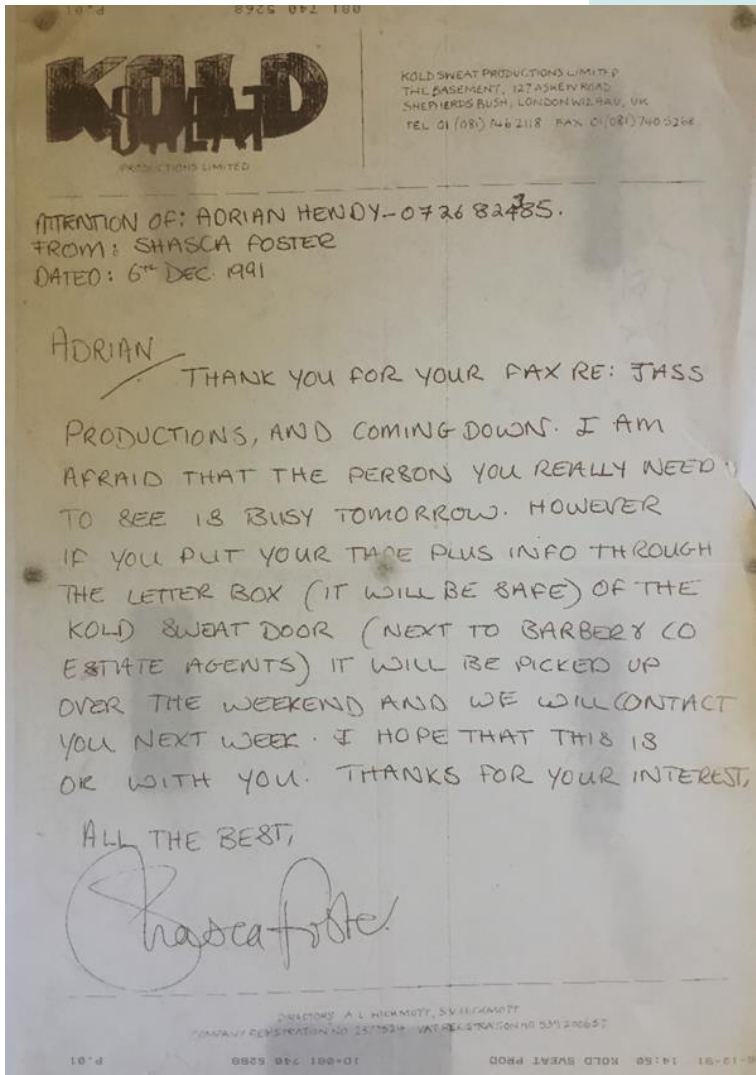 P.01
081 740 5268
KOLD
SWEAT
PRODUCTIONS LIMITED
KOLD SWEAT PRODUCTIONS LIMITED
THE BASEMENT, 127 ASKEW ROAD
SHEPHERDS BUSH, LONDON UK
TEL 01 (081) 746 2118 FAX 01 (081) 740 5268
ATTENTION OF: ADRIAN HENDY - 0726 82
FROM: SHASCA FOSTER
DATED: 6TH DEC. 1991
ADRIAN
THANK YOU FOR YOUR FAX RE: JASS
PRODUCTIONS, AND COMING DOWN. I AM
AFRAID THAT THE PERSON YOU REALLY NEED
TO SEE IS BUSY TOMORROW. HOWEVER
IF YOU PUT YOUR TAPE PLUS INFO THROUGH
THE LETTER BOX (IT WILL BE SAFE) OF THE
KOLD SWEAT DOOR (NEXT TO BARBERY CO
ESTATE AGENTS) IT WILL BE PICKED UP
OVER THE WEEKEND AND WE WILL CONTACT
YOU NEXT WEEK. I HOPE THAT THIS IS
OK WITH YOU. THANKS FOR YOUR INTEREST,
ALL THE BEST,
Shasca Foster
DIRECTORS A L S.V.
COMPANY REGISTRATION NO VAT REGISTRATION NO
6-12-91 14:50 KOLD SWEAT PROD ID=081 740 5268 P.01